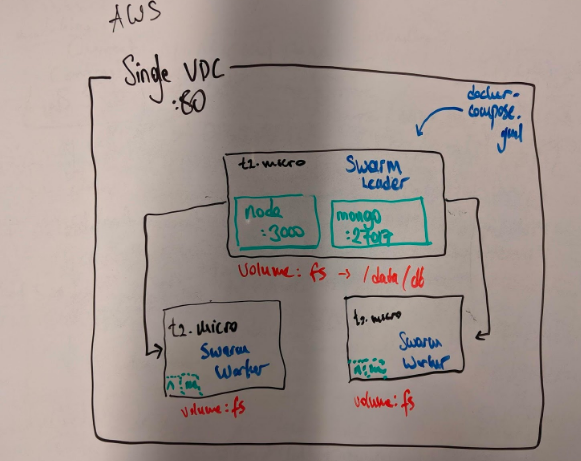 AWS
Single VDC
:80
docker-
compose.
yml
t2.micro
Swarm
Leader
node
:3000
mongo
:27017
volume: fs → /data/db
t2.micro
Swarm
Worker
n
volume: fs
t2.micro
Swarm
Worker
n
volume: fs